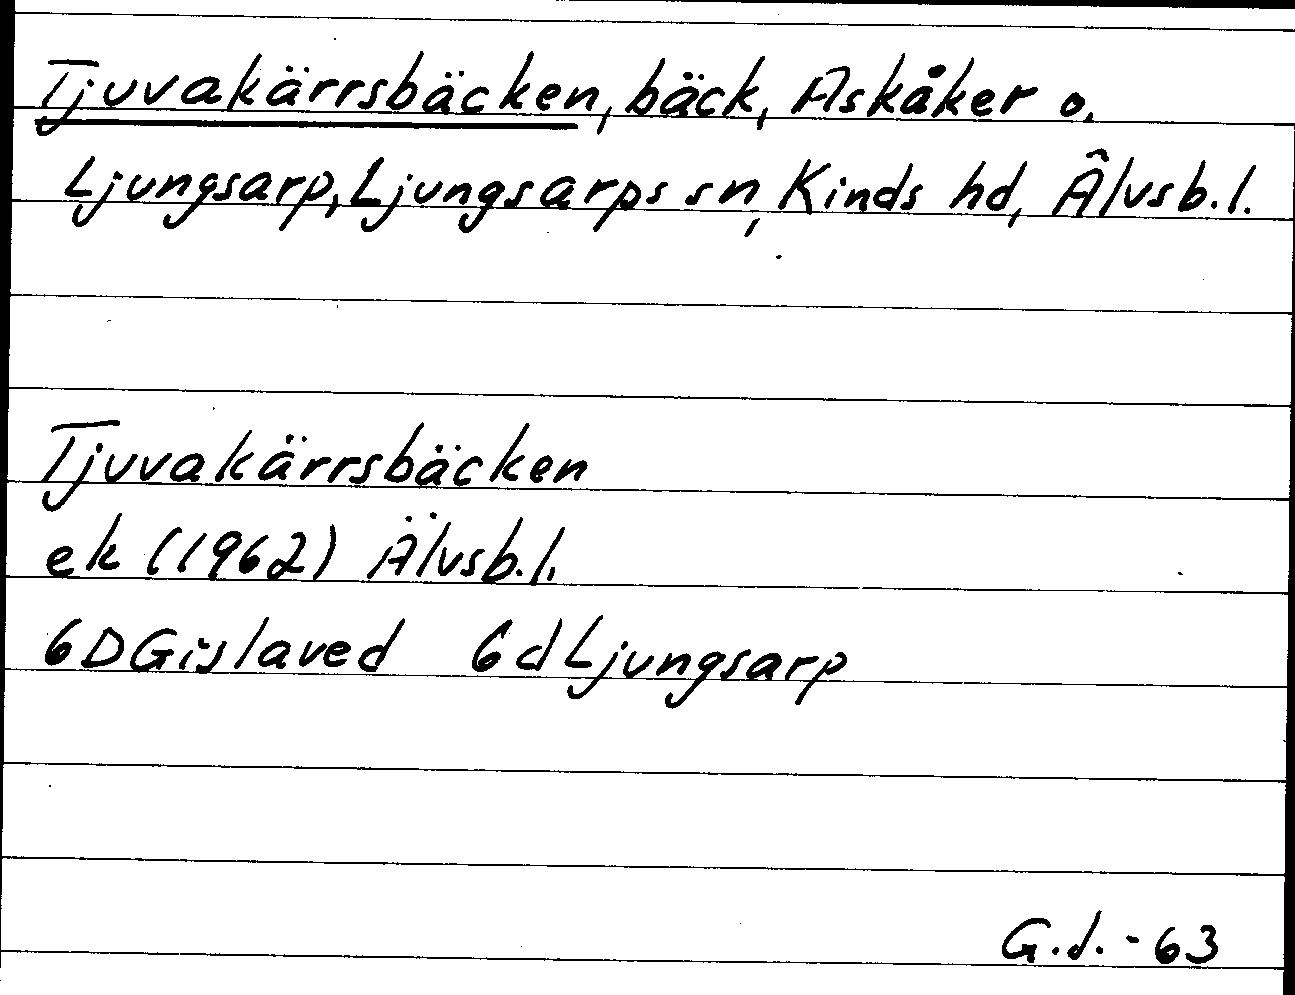 Tjuvakärrsbäcken, bäck, Askåker o.
Ljungsarp, Ljungsarps sn, Kinds hd, Älvsb.l.
Tjuvakärrsbäcken
ek (1962) Älvsb.l.
6D Gislaved 6d Ljungsarp
G.d. -63